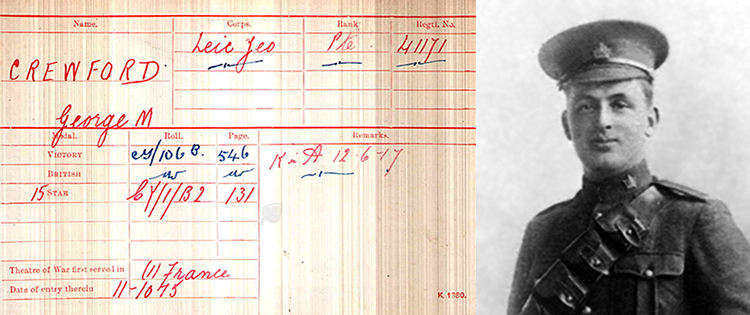 Name. Corps. Rank. Regtl. No.
CREWFORD Leic Yeo Pte 41171
George M
Medal. Roll. Page. Remarks.
VICTORY 546 K in A 12-6-17
BRITISH
15 STAR 131
Theatre of War first served in (1) France
Date of entry therein 11-10-15
K 1380.